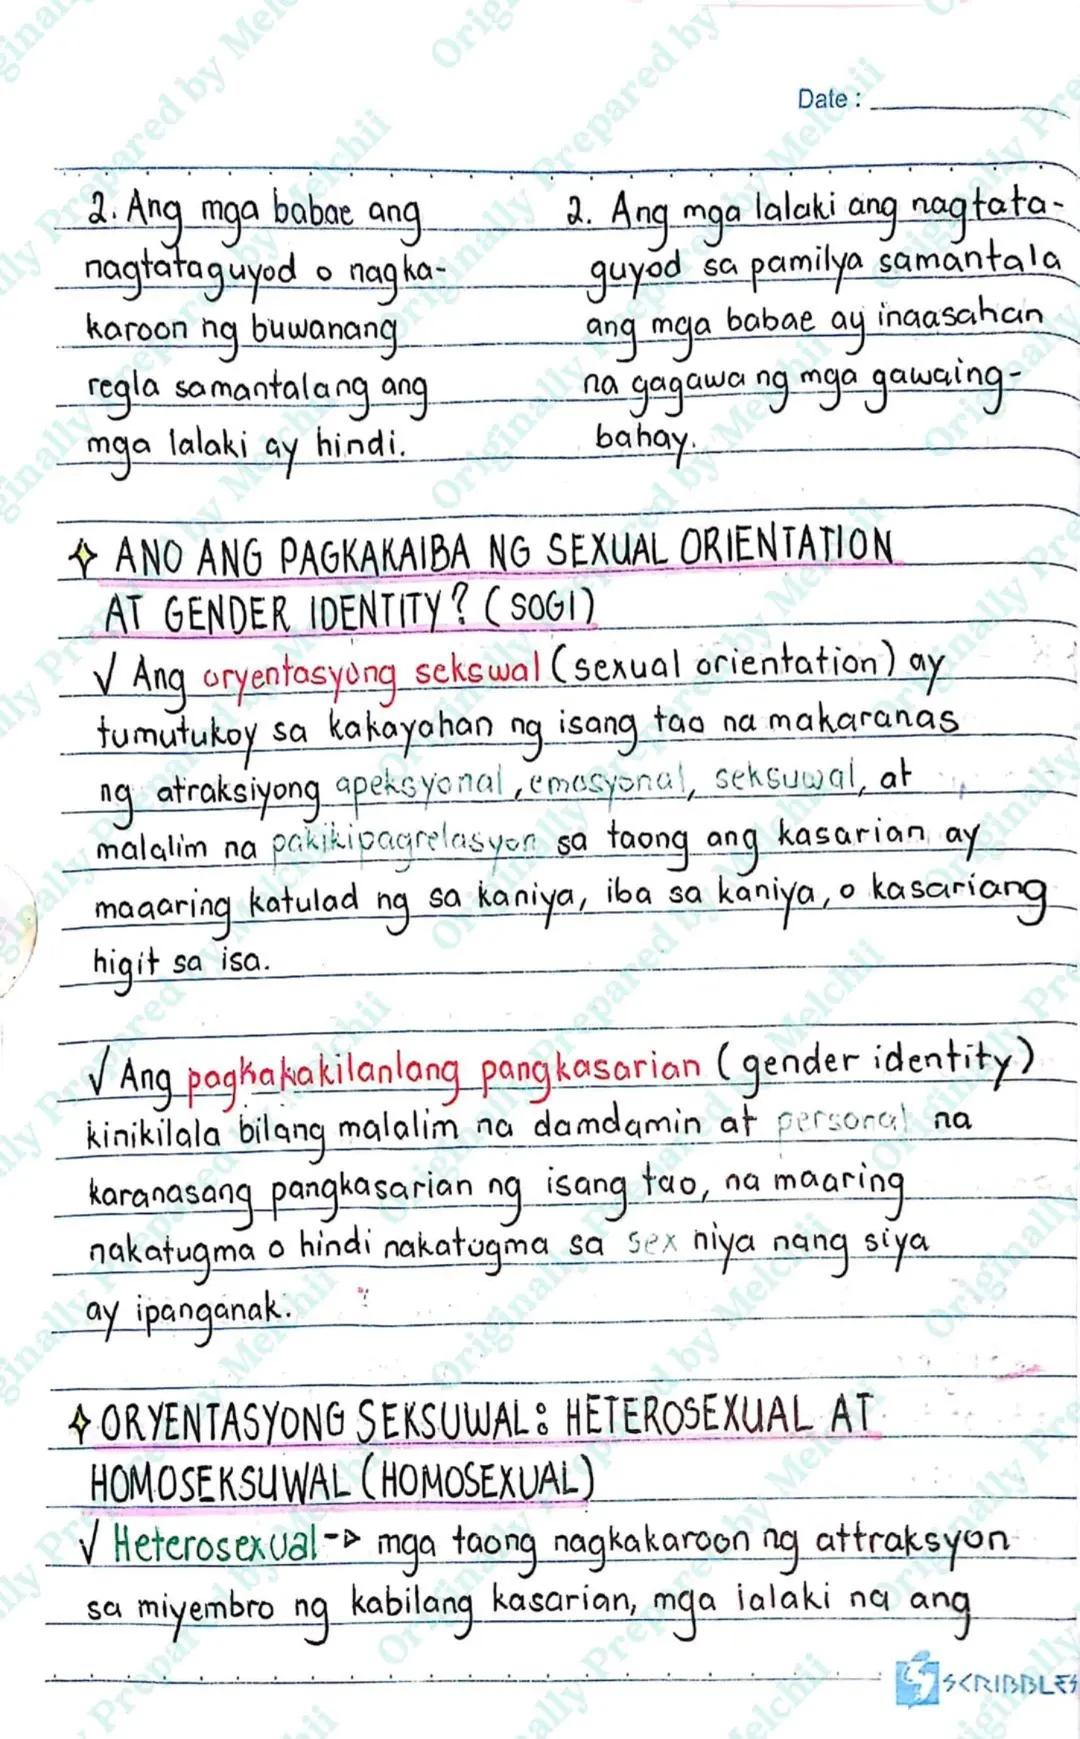 Date :
2. Ang mga babae ang
nagtataguyod o nagka-
karoon ng buwanang
regla samantalang ang
mga lalaki ay hindi.
2. Ang mga lalaki ang nagtata-
guyod sa pamilya samantala
ang mga babae ay inaasahan
na gagawa ng mga gawaing-
bahay.
ANO ANG PAGKAKAIBA NG SEXUAL ORIENTATION
AT GENDER IDENTITY? (SOGI)
√ Ang oryentasyong sekswal (sexual orientation) ay
tumutukoy sa kakayahan ng isang tao na makaranas
ng atraksiyong apeksyonal, emosyonal, seksuwal, at
malalim na pakikipagrelasyon sa taong ang kasarian ay
maaaring katulad ng sa kaniya, iba sa kaniya, o kasariang
higit sa isa.
√ Ang pagkakakilanlang pangkasarian (gender identity)
kinikilala bilang malalim na damdamin at personal na
karanasang pangkasarian ng isang tao, na maaring
nakatugma o hindi nakatugma sa sex niya nang siya
ay ipanganak.
ORYENTASYONG SEKSUWAL: HETEROSEXUAL AT
HOMOSEKSUWAL (HOMOSEXUAL)
√ Heterosexual -> mga taong nagkakaroon ng attraksyon
sa miyembro ng kabilang kasarian, mga lalaki na ang
SCRIBBLES
Originally Prepared by Melchii